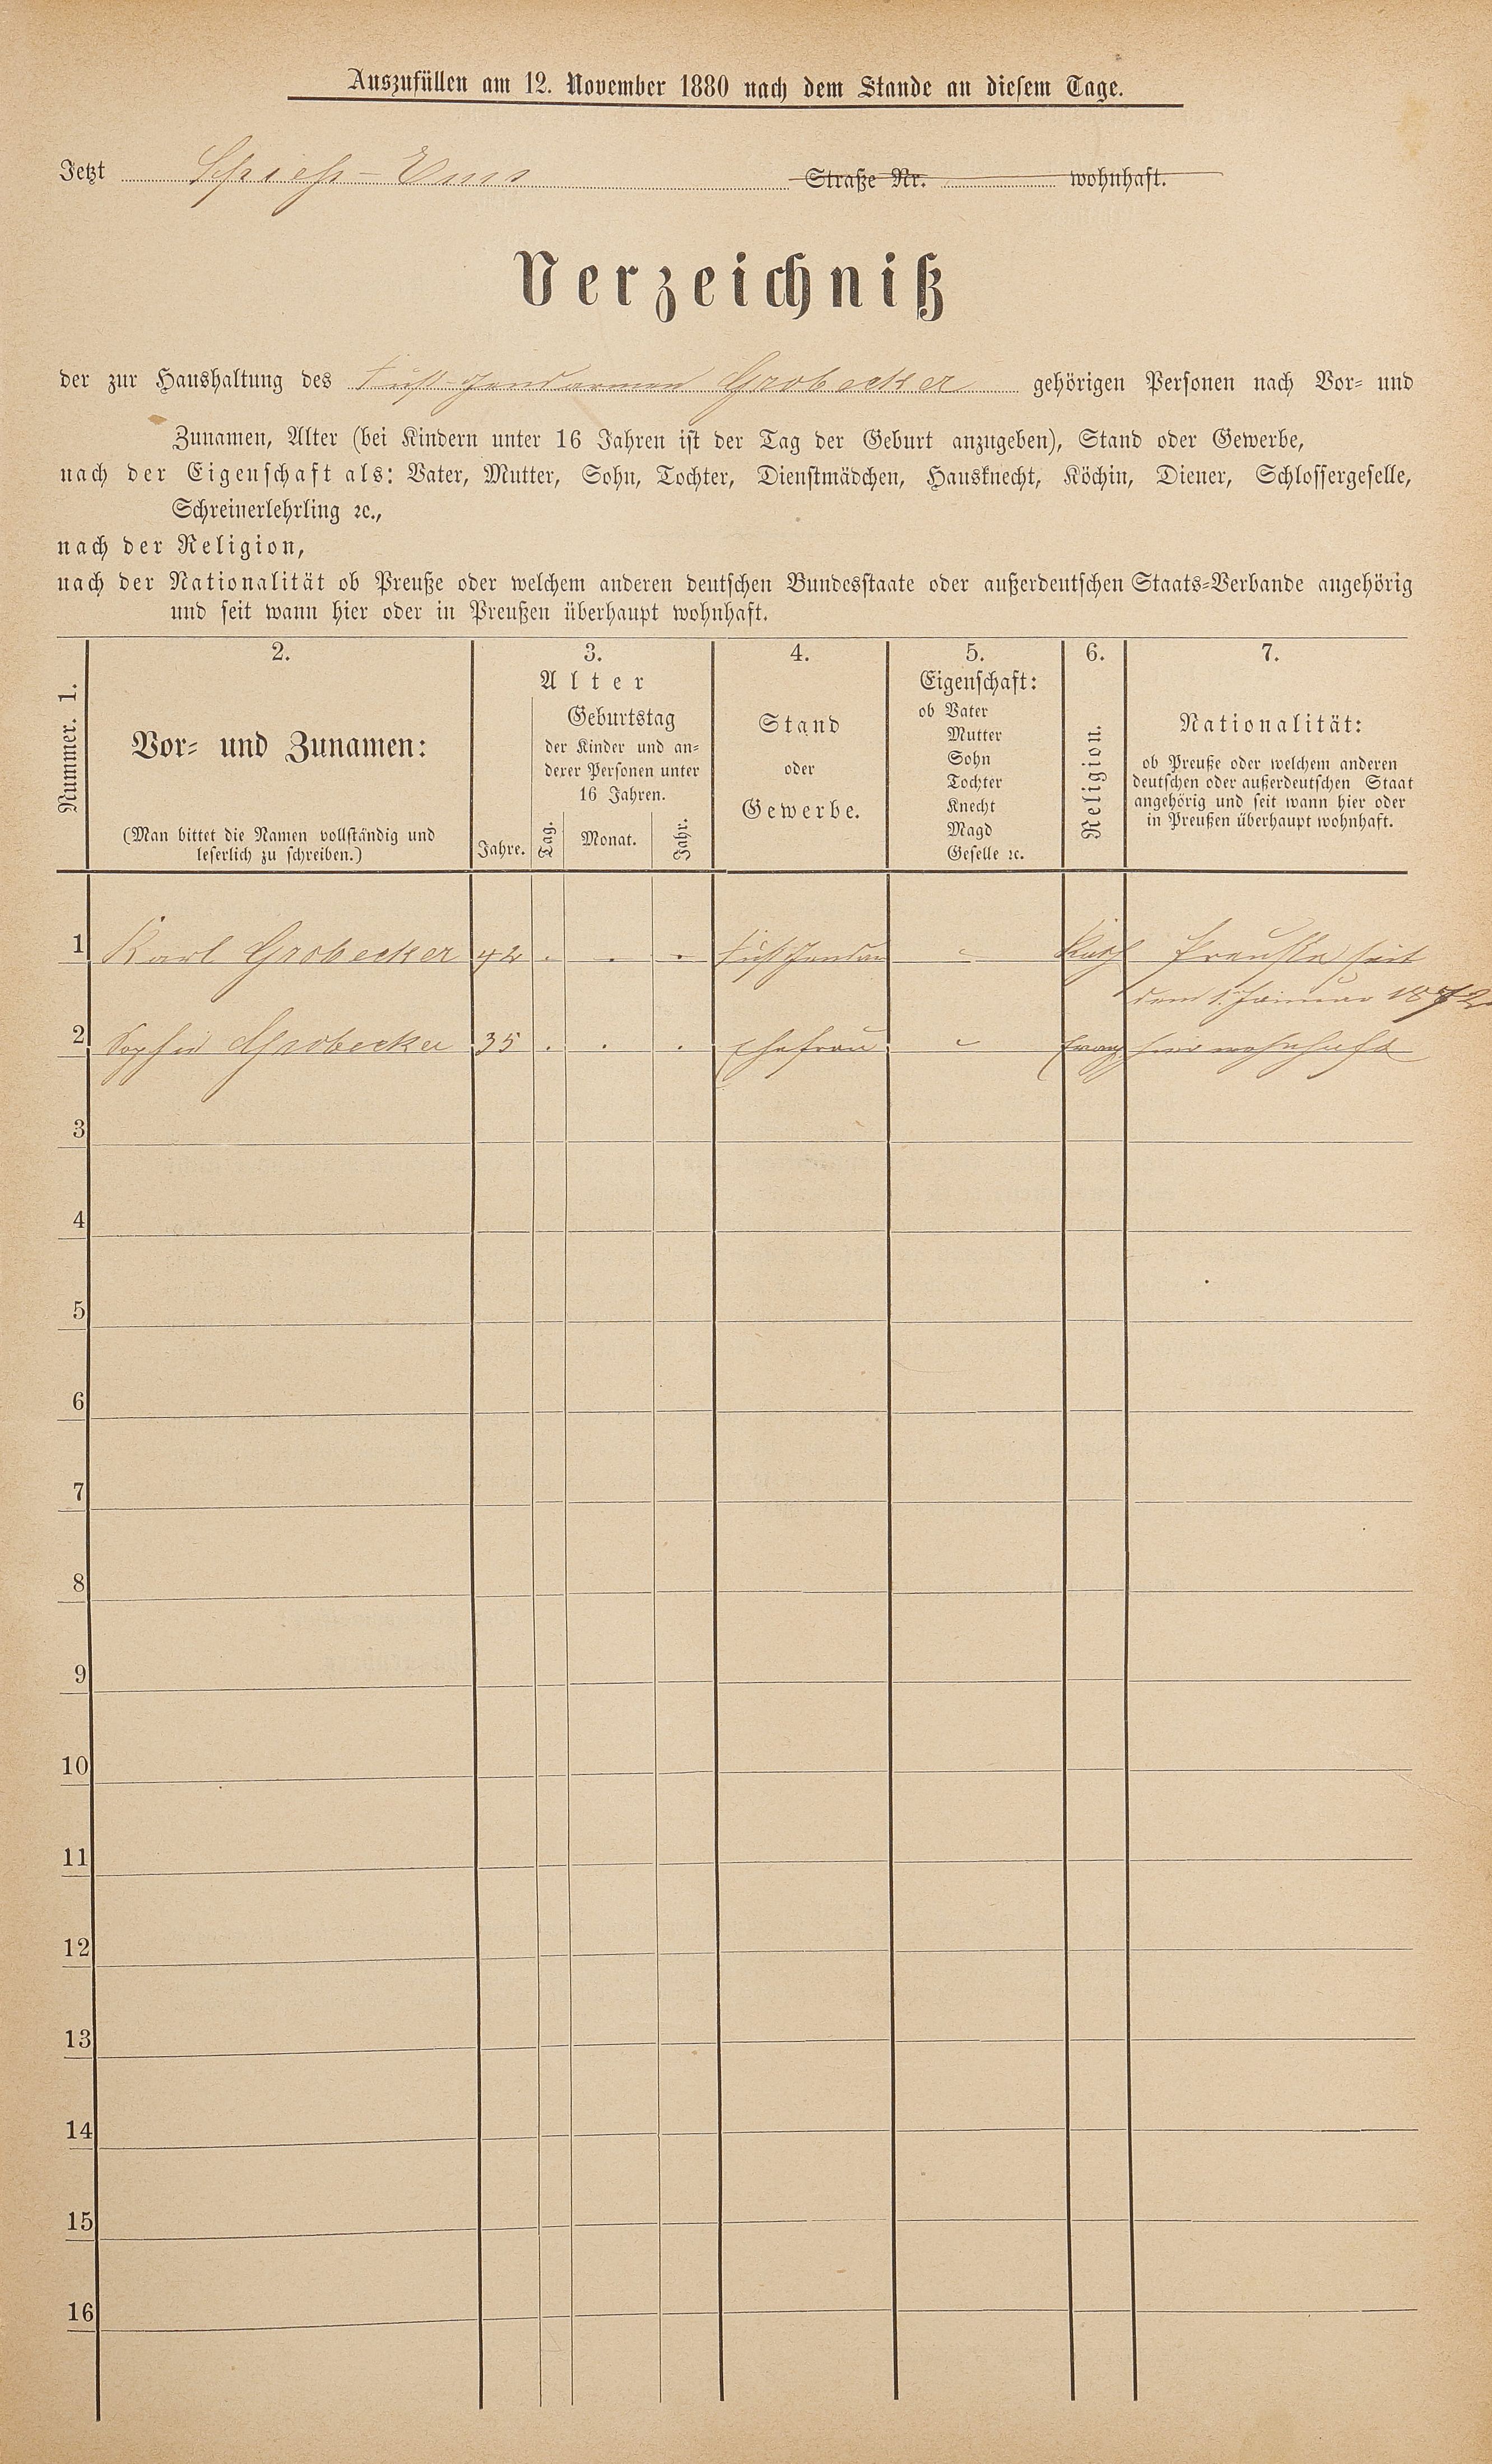 Auszufüllen am 12. November 1880 nach dem Stande an diesem Tage.
Jetzt Spieß-Ems Straße Nr. wohnhaft.
Verzeichniß
der zur Haushaltung des Fuß-Gendarmen Grobecker gehörigen Personen nach Vor- und
Zunamen, Alter (bei Kindern unter 16 Jahren ist der Tag der Geburt anzugeben), Stand oder Gewerbe,
nach der Eigenschaft als: Vater, Mutter, Sohn, Tochter, Dienstmädchen, Hausknecht, Köchin, Diener, Schlossergeselle,
Schreinerlehrling ꝛc.,
nach der Religion,
nach der Nationalität ob Preuße oder welchem anderen deutschen Bundesstaate oder außerdeutschen Staats-Verbande angehörig
und seit wann hier oder in Preußen überhaupt wohnhaft.
Nummer. 1.
2.
Vor- und Zunamen:
(Man bittet die Namen vollständig und
leserlich zu schreiben.)
3.
Alter
Jahre.
Geburtstag
der Kinder und an-
derer Personen unter
16 Jahren.
Tag. Monat. Jahr.
4.
Stand
oder
Gewerbe.
5.
Eigenschaft:
ob Vater
Mutter
Sohn
Tochter
Knecht
Magd
Geselle ꝛc.
6.
Religion.
7.
Nationalität:
ob Preuße oder welchem anderen
deutschen oder außerdeutschen Staat
angehörig und seit wann hier oder
in Preußen überhaupt wohnhaft.
1 Karl Grobecker 42 . . . Fuß Gendar Kath Preuße seit
dem 1. Januar 1872
2 Sophie Grobecker 35 . . . Ehefrau Evang hier wohnhaft
3
4
5
6
7
8
9
10
11
12
13
14
15
16